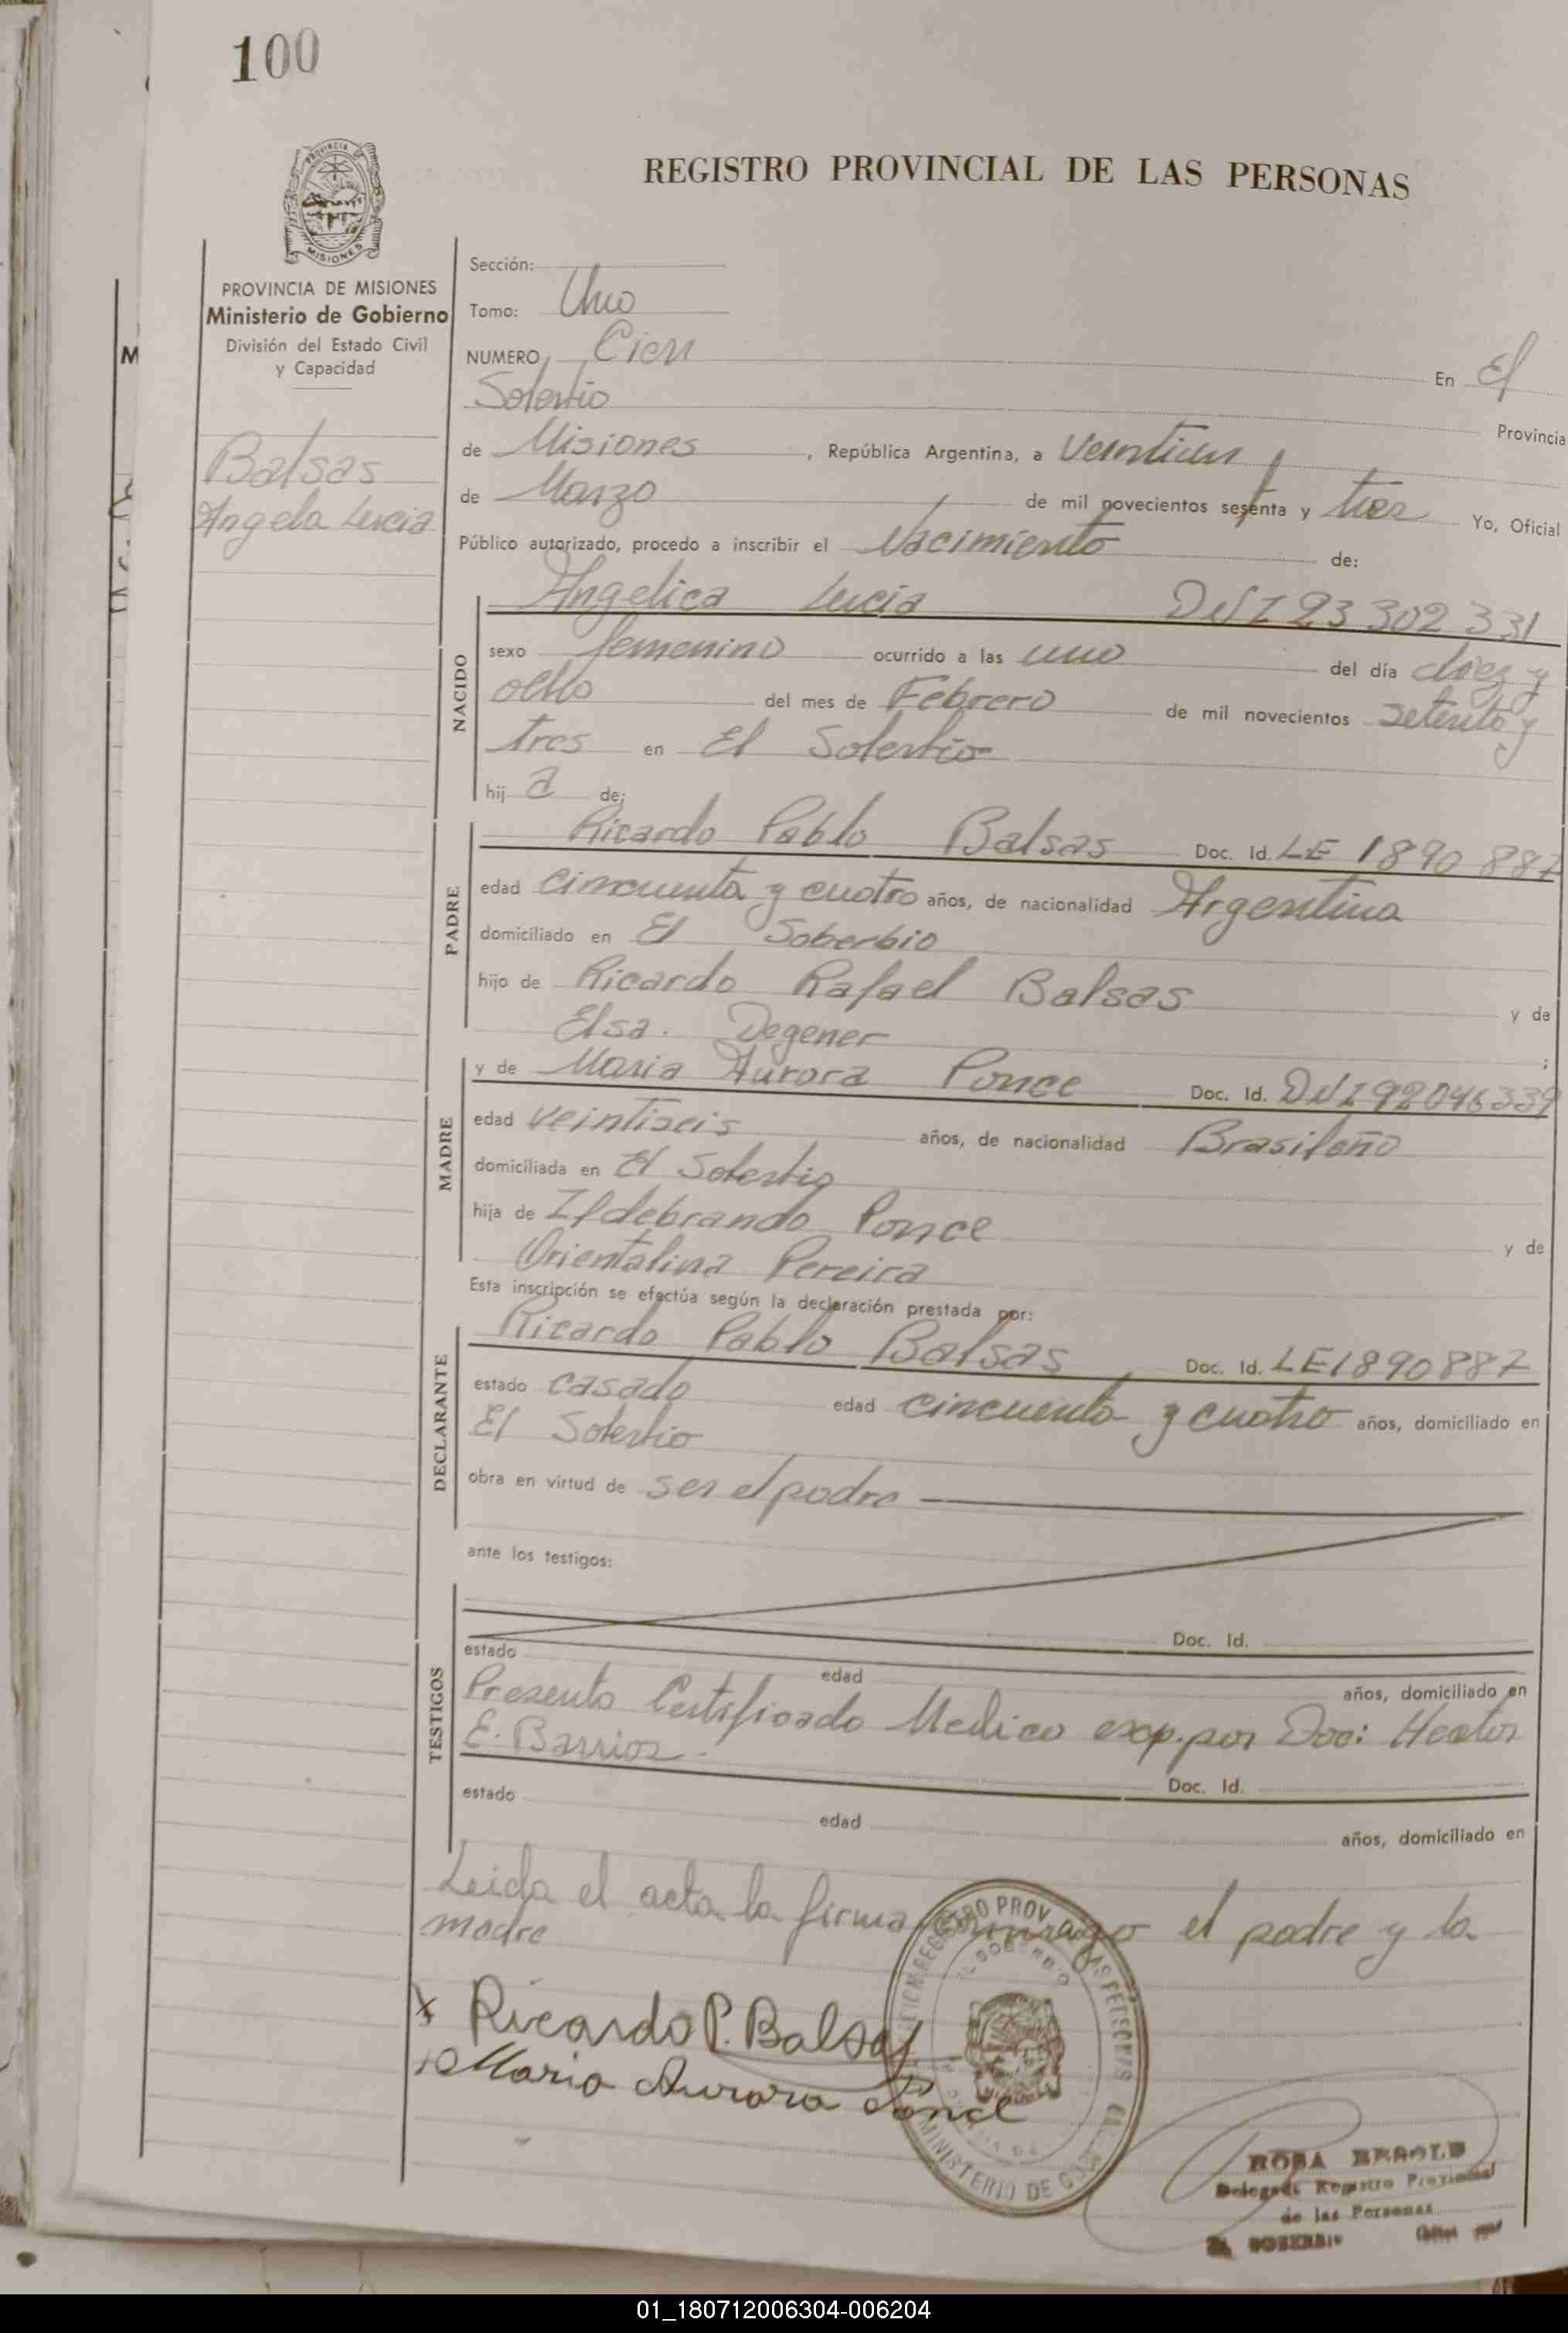 100
PROVINCIA DE
MISIONES
REGISTRO PROVINCIAL DE LAS PERSONAS
PROVINCIA DE MISIONES
Ministerio de Gobierno
División del Estado Civil
y Capacidad
Balsas
Angela Lucia
Sección:
Tomo: Uno
NUMERO Cien En El
Soberbio Provincia
de Misiones, República Argentina, a Veintiun
de Marzo de mil novecientos sesenta y tres Yo, Oficial
Público autorizado, procedo a inscribir el Nacimiento de:
Angelica Lucia DNI 23 302 331
NACIDO
sexo femenino ocurrido a las uno del día diez y
ocho del mes de Febrero de mil novecientos setenta y
tres en El Soberbio
hij a de:
PADRE
Ricardo Pablo Balsas Doc. Id. LE 1890 887
edad cincuenta y cuatro años, de nacionalidad Argentina
domiciliado en El Soberbio
hijo de Ricardo Rafael Balsas y de
Elsa. Degener ;
MADRE
y de Maria Aurora Ponce Doc. Id. DNI 92046339
edad veintiseis años, de nacionalidad Brasileño
domiciliada en El Soberbio
hija de Ildebrando Ponce y de
Orientalina Pereira
Esta inscripción se efectúa según la declaración prestada por:
DECLARANTE
Ricardo Pablo Balsas Doc. Id. LE 1890887
estado casado edad cincuenta y cuatro años, domiciliado en
El Soberbio
obra en virtud de ser el padre
ante los testigos:
TESTIGOS
Doc. Id.
estado edad años, domiciliado en
Presento Certificado Medico exp. por Doc: Hector
E. Barrios.
Doc. Id.
estado edad años, domiciliado en
Leida el acta la firma conmigo el padre y la
madre
x Ricardo P. Balsas
Maria Aurora Ponce
REGISTRO PROV. DE LAS PERSONAS
EL SOBERBIO
MINISTERIO DE GOB
ROSA BEROLD
Delegada Registro Provincial
de las Personas
EL SOBERBIO
01_180712006304-006204